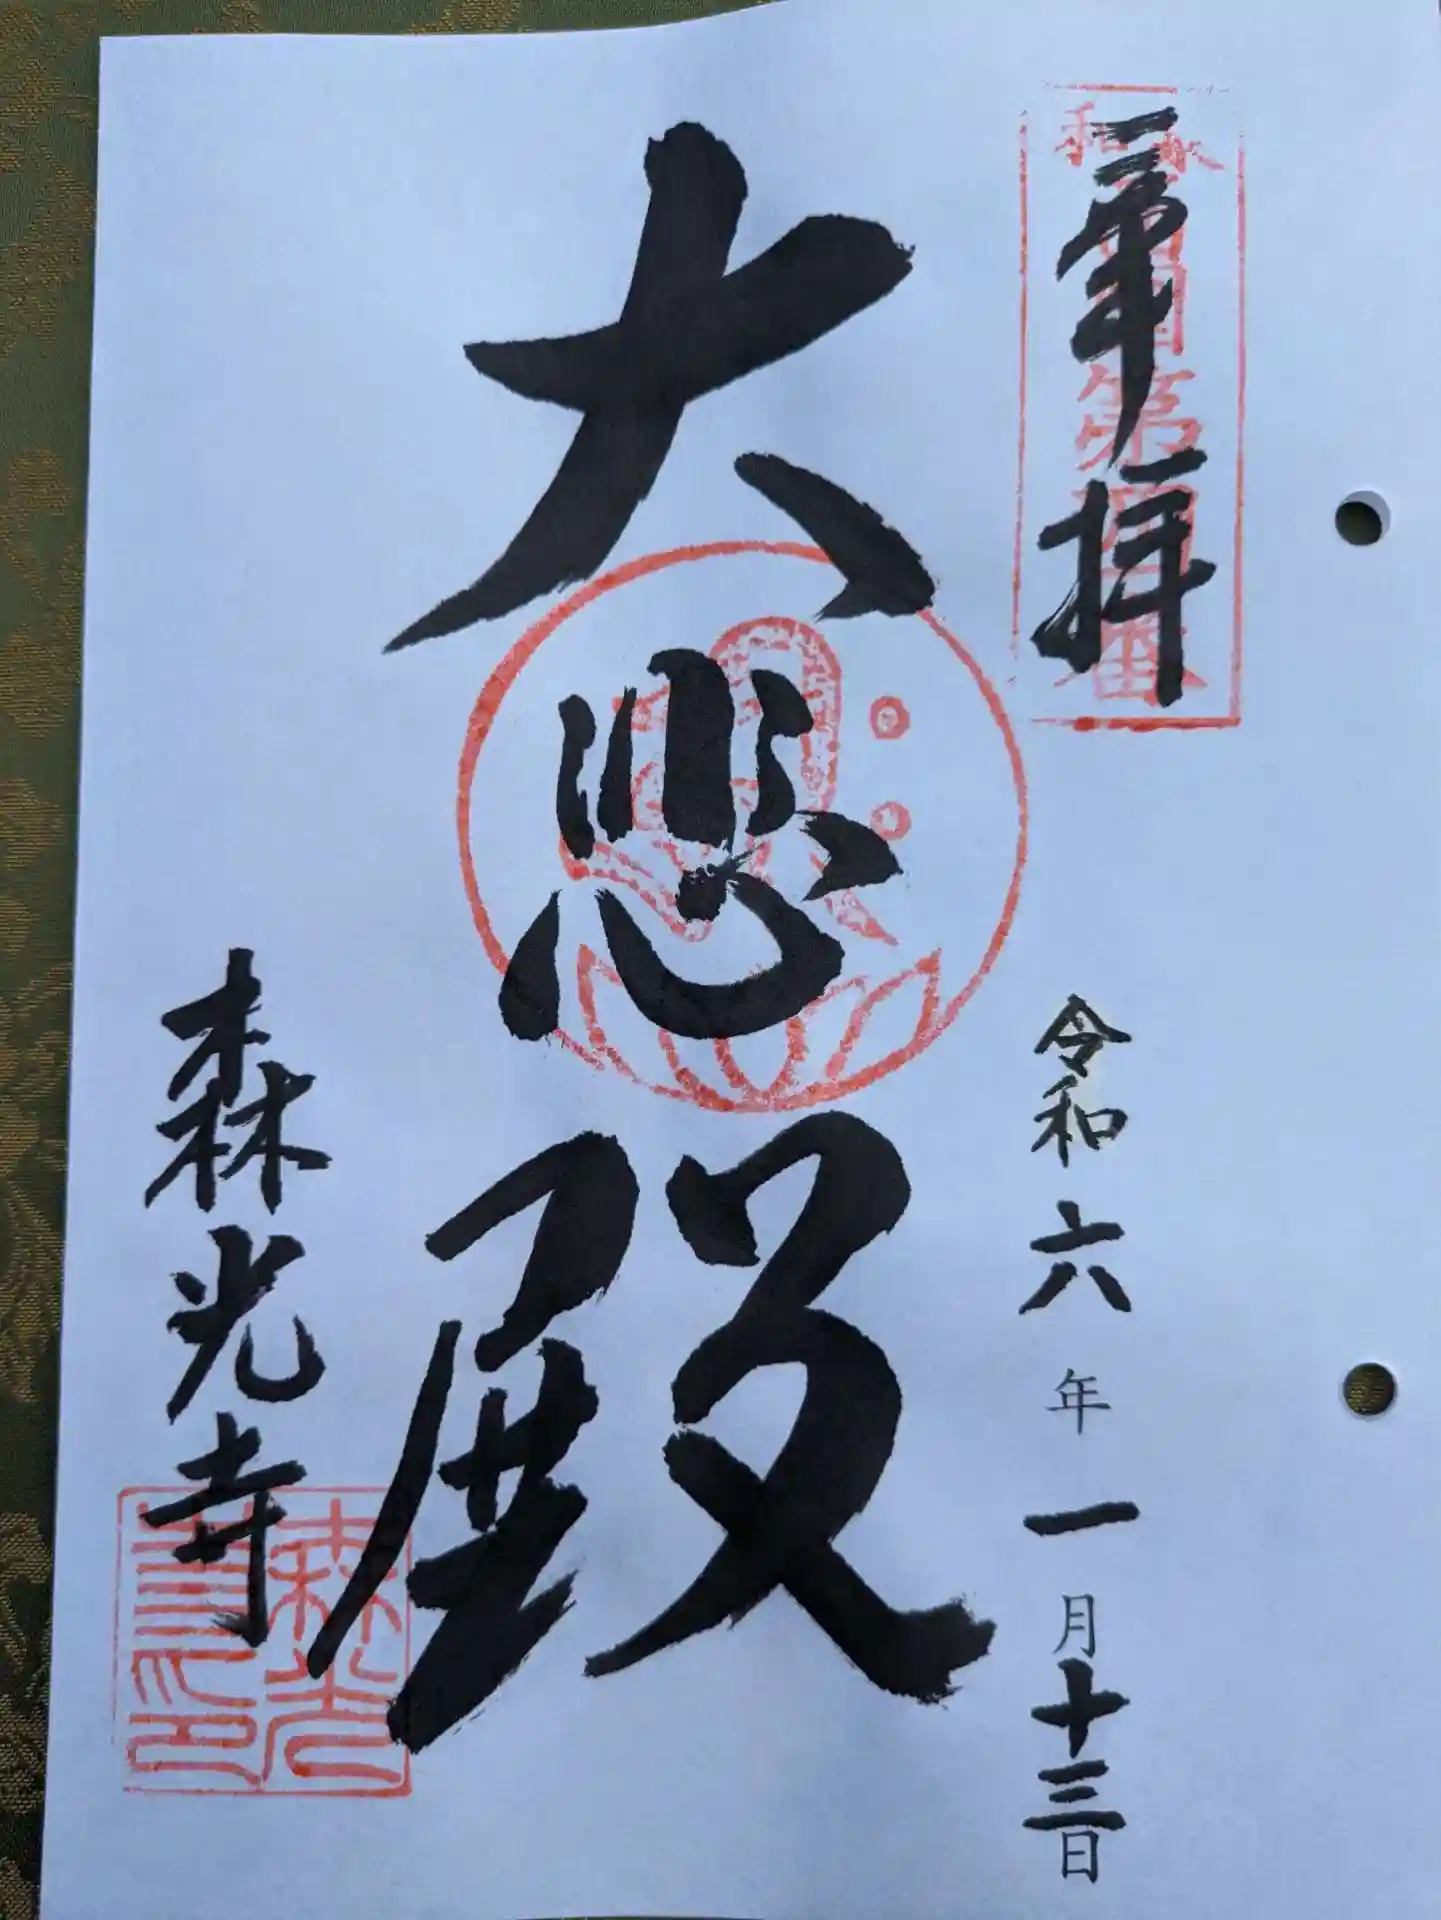 奉拝
大悲殿
令和六年一月十三日
森光寺
森光
寺印